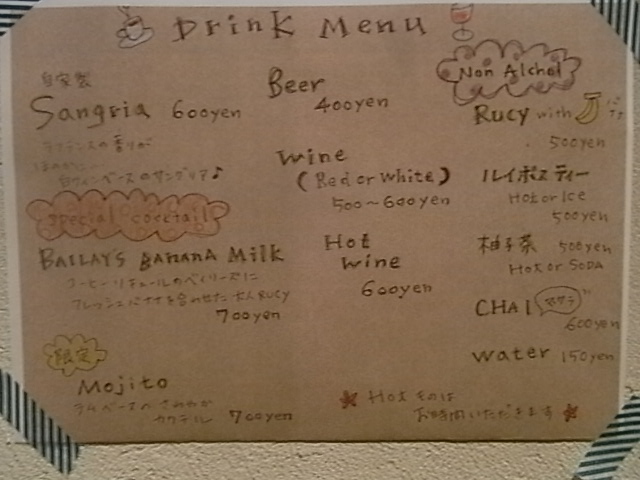 Drink Menu
自家製
Sangria 600yen
香りが
ほのかに
白ワインベースのサングリア♪
Special cocktail
BAILAYS BANANA Milk
コーヒーリキュールのベイリーズに
フレッシュバナナを合わせた大人RUCY
700yen
限定
Mojito
ラムベースのさわやか
カクテル 700yen
Beer
400yen
Wine
(Red or White)
500~600yen
Hot
Wine
600yen
Non Alchol
Rucy with
500yen
ルイボスティー
Hot or Ice
500yen
柚子茶 500yen
Hot or SODA
CHAI
600yen
Water 150yen
★ Hot ものは
お時間いただきます ★